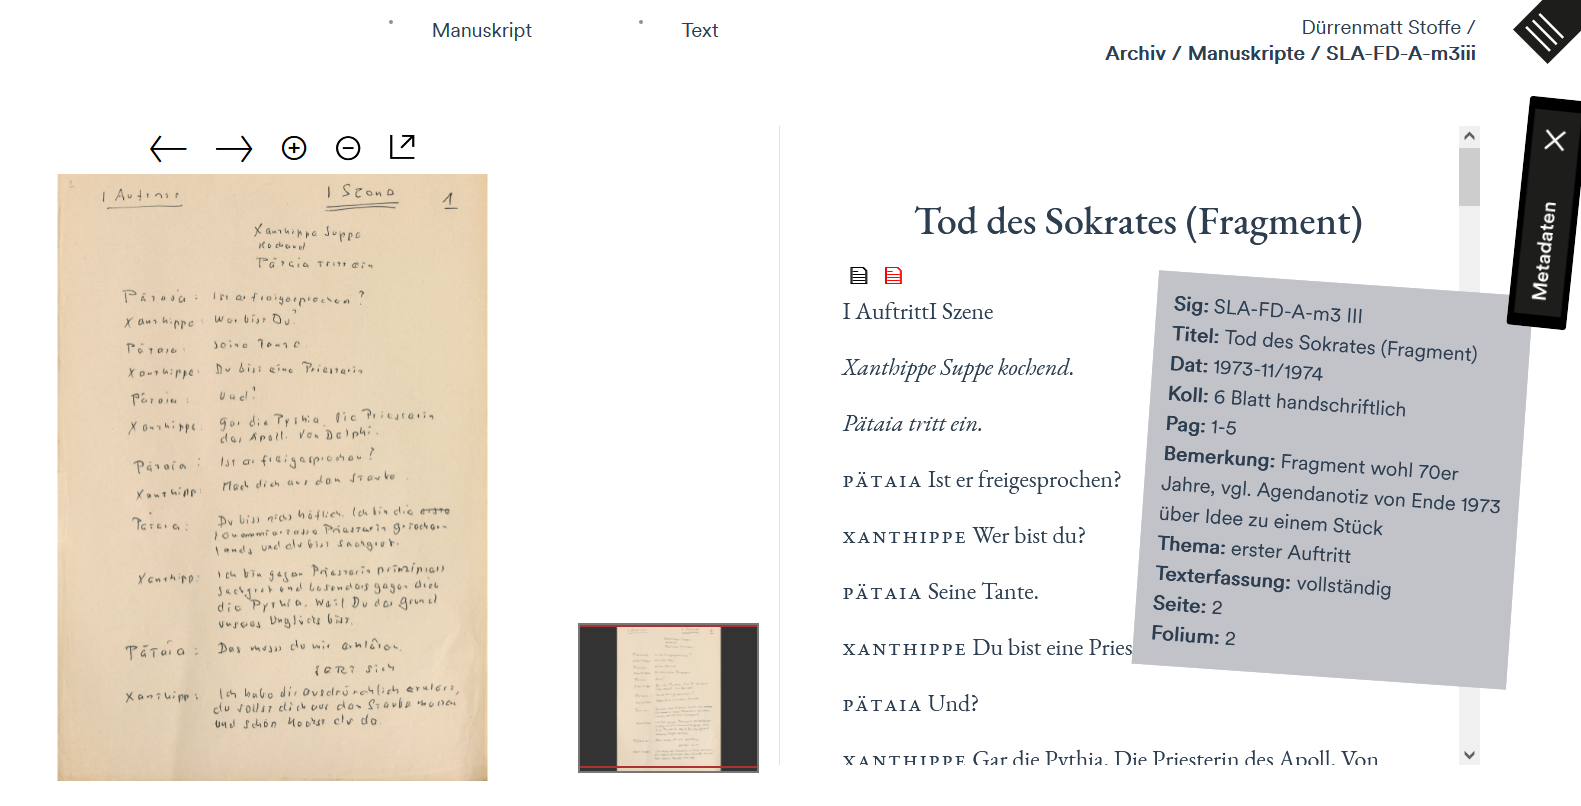 Manuskript
Text
Dürrenmatt Stoffe /
Archiv / Manuskripte / SLA-FD-A-m3iii
Metadaten
I Auftritt
I Szene
1
Xanthippe Suppe
kochend
Pätaia tritt ein
Pätaia: Ist er freigesprochen?
Xanthippe: Wer bist Du?
Pätaia: Seine Tante.
Xanthippe: Du bist eine Priesterin
Pätaia: Und?
Xanthippe: Gar die Pythia. Die Priesterin
des Apoll. Von Delphi.
Pätaia: Ist er freigesprochen?
Xanthipp: Mach dich aus dem Staube.
Pätaia: Du bist nicht höflich. Ich bin die erste
renommierteste Priesterin Griechen-
lands und du bist Sachgret.
Xanthipp: Ich bin gegen Priesterin prinzipiell
und besonders gegen dich
die Pythia. Weil Du der Grund
unseres Unglücks bist.
Pätaia: Das musst du mir erklären.
setzt sich
Xanthipp: Ich habe dir ausdrücklich erklärt,
du sollst dich aus dem Staube machen
und schon hockst du da.
Tod des Sokrates (Fragment)
I AuftrittI Szene
Xanthippe Suppe kochend.
Pätaia tritt ein.
PÄTAIA Ist er freigesprochen?
XANTHIPPE Wer bist du?
PÄTAIA Seine Tante.
XANTHIPPE Du bist eine Pries
PÄTAIA Und?
XANTHIPPE Gar die Pythia. Die Priesterin des Apoll. Von
Sig: SLA-FD-A-m3 III
Titel: Tod des Sokrates (Fragment)
Dat: 1973-11/1974
Koll: 6 Blatt handschriftlich
Pag: 1-5
Bemerkung: Fragment wohl 70er
Jahre, vgl. Agendanotiz von Ende 1973
über Idee zu einem Stück
Thema: erster Auftritt
Texterfassung: vollständig
Seite: 2
Folium: 2